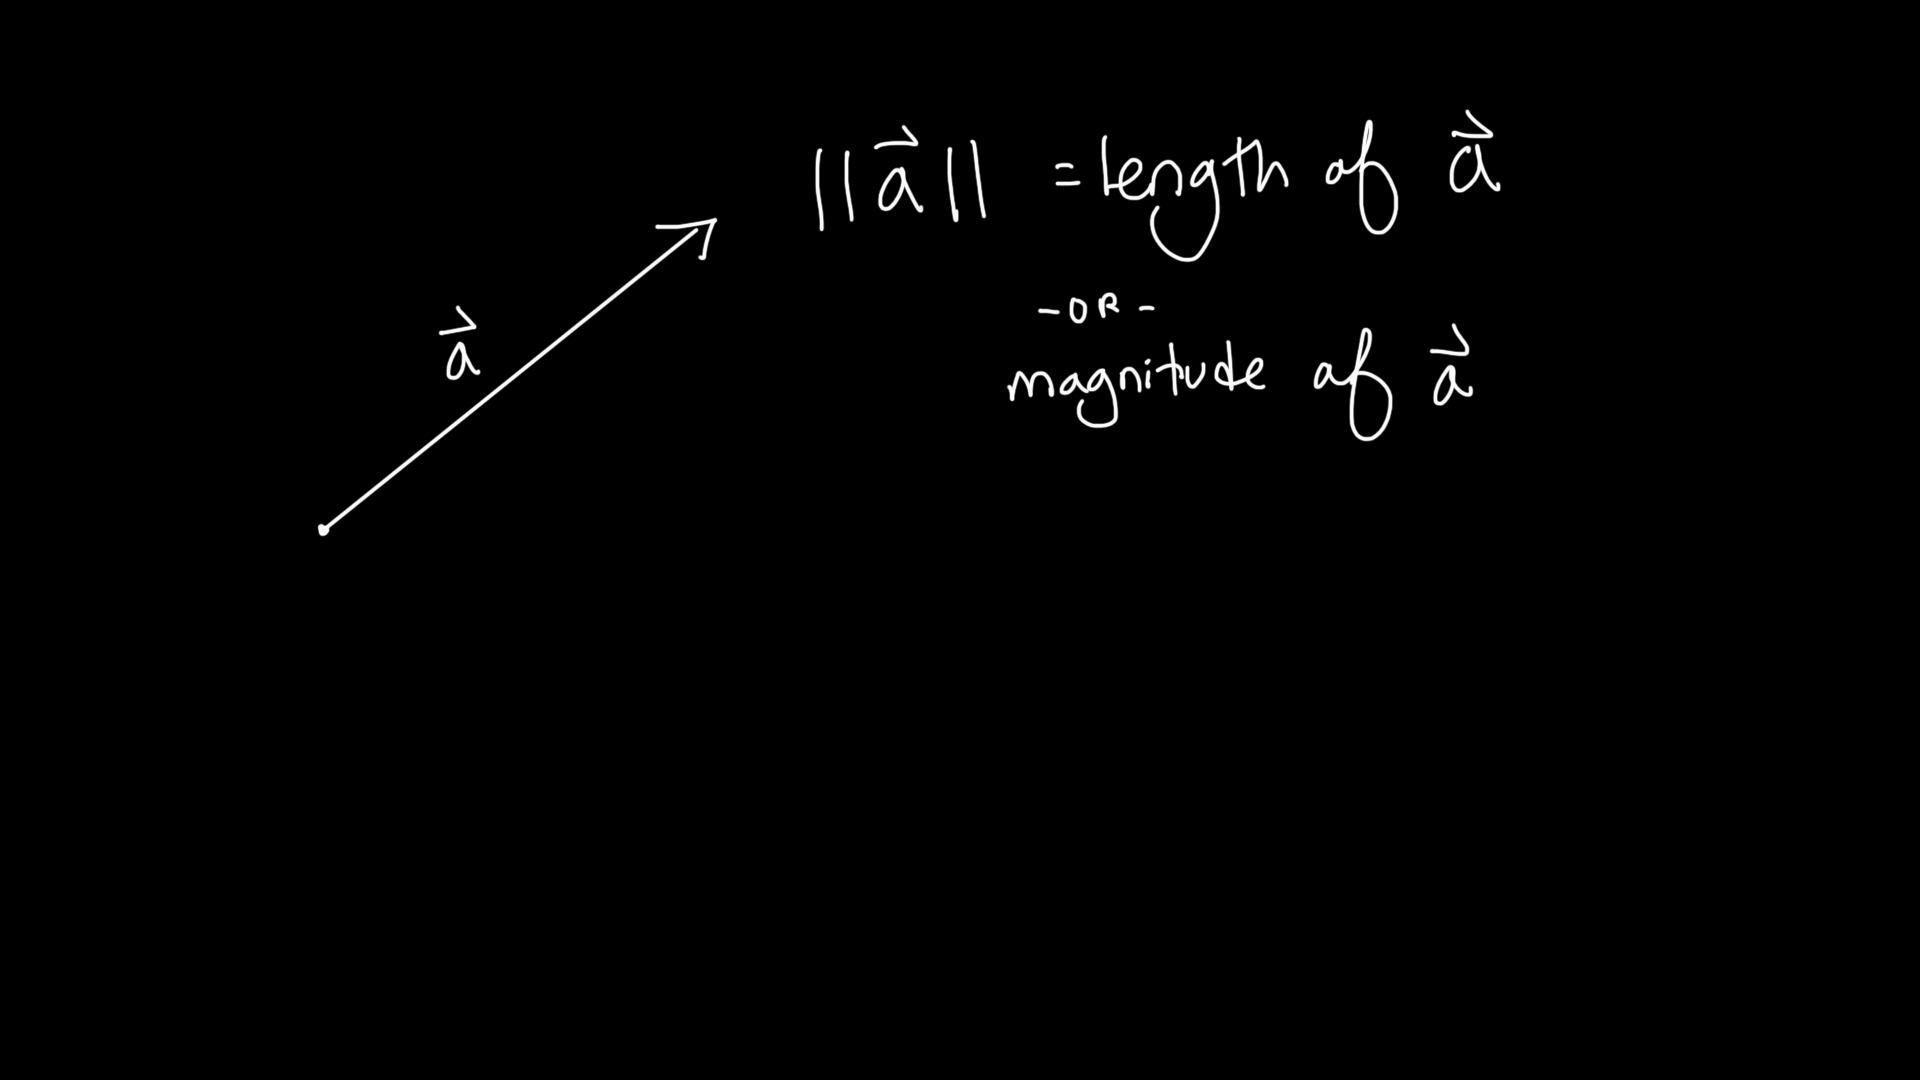 ||a⃗|| = length of a⃗
-OR-
magnitude of a⃗
a⃗